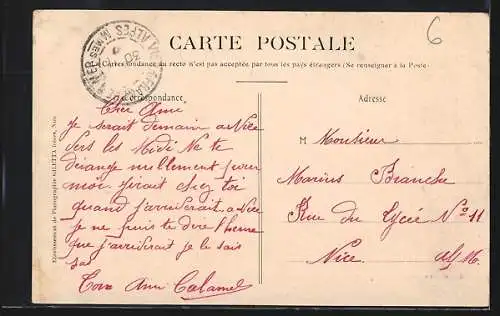 6
CARTE POSTALE
La Correspondance du recto n'est pas acceptée par tous les pays étrangers (Se renseigner à la Poste)
Correspondance
Adresse
Cher Ami
Je serait demain a Nice
vers les Midi Ne te
derange nullement pour
moi jirait chez toi
quand j'arriverait a Nice
je ne puis te dire l'heure
que j'arriverait je le sais
pas
Ton Ami Calamel
M Monsieur
Marius Bianchi
Rue du Lycée No 11
Nice. Alp. M.
Etablissement de Photographie GILETTA frères, Nice
ALPES MMES
30